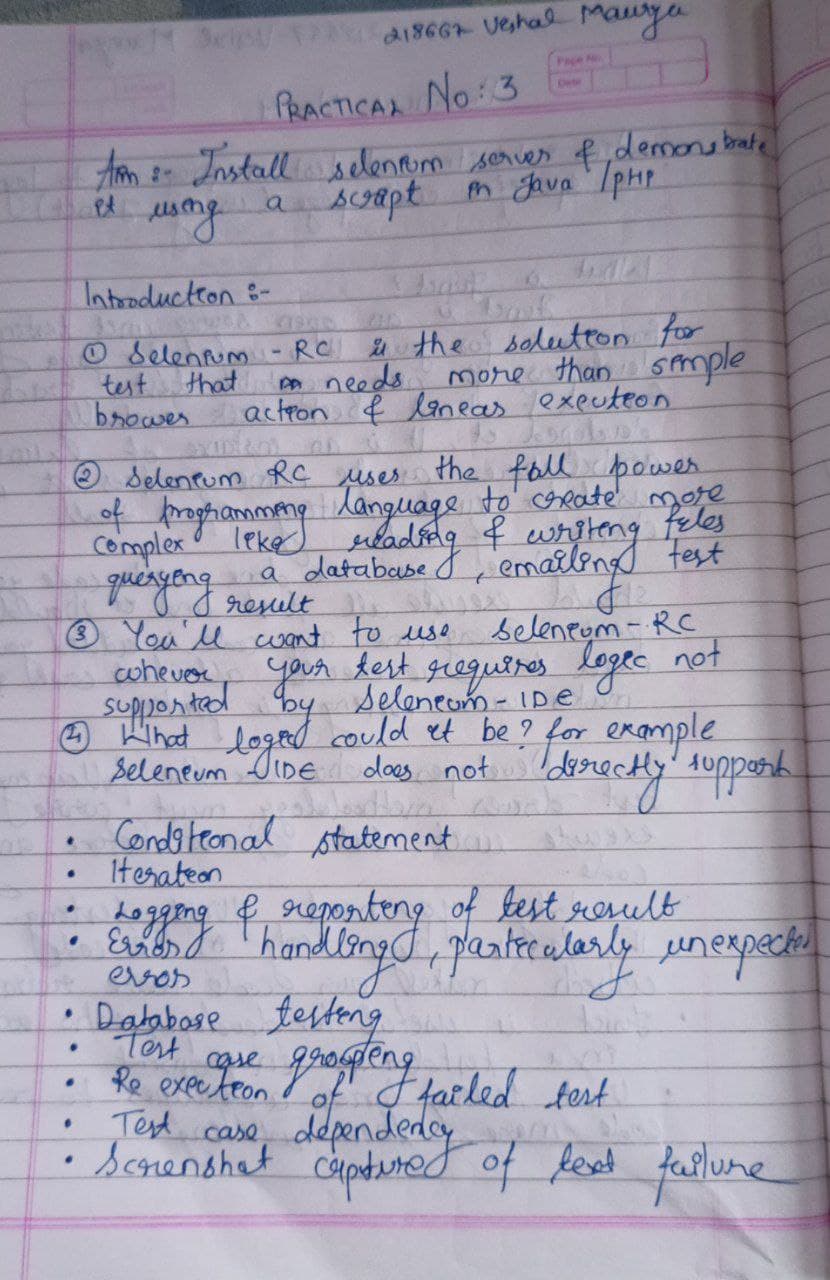 218667 Vishal Maurya
Page No.
Date
PRACTICAL No: 3
Aim :- Install selenium server & demonstrate
it using a script in Java / PHP
Introduction :-
① Selenium - RC is the solution for
test that needs more than simple
brower action & linear execution
② Selenium RC uses the full power
of programming language to create more
complex like reading & writing files
querying a database, emailing test
result
③ You'll want to use Selenium - RC
whever your test requires logic not
supported by Selenium - IDE
④ What logic could it be? for example
Selenium - IDE does not directly support
• Conditional statement
• Iteration
• Logging & reporting of test result
• Error handling, particularly unexpected
error
• Database testing
• Test case grouping
• Re execution of failed test
• Test case dependency
• Screnshat captured of test failure